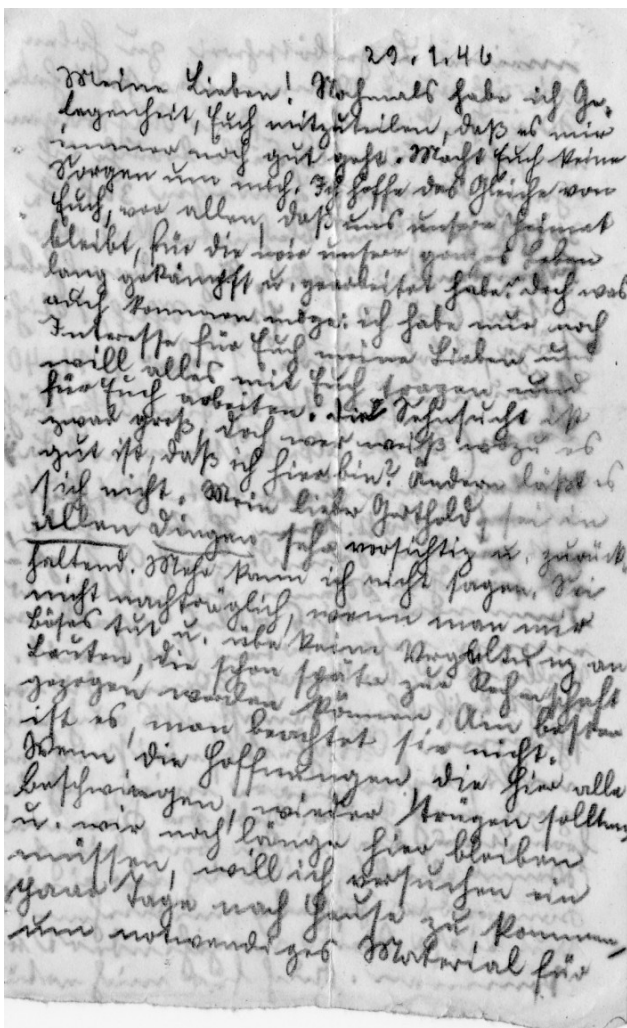 29.1.46
Meine Lieben! Nochmals habe ich Ge-
legenheit, Euch mitzuteilen, daß es mir
immer noch gut geht. Macht Euch keine
Sorgen um mich. Ich hoffe das Gleiche von
Euch, vor allen, daß uns unsere Heimat
bleibt, für die wir unser ganzes Leben
lang gekämpft u. gearbeitet habe. Doch was
auch kommen möge: ich habe nur noch
Interesse für Euch meine Lieben und
will alles mit Euch tragen und
für Euch arbeiten. Die Sehnsucht ist
zwar groß, doch wer weiß wozu es
gut ist, daß ich hier bin? Ändern läßt es
sich nicht. Mein lieber Gerthold, sei in
allen Dingen sehr vorsichtig u. zurück-
haltend. Mehr kann ich nicht sagen. Sei
nicht nachträglich, wenn man mir
Böses tut u. übe keine Vergeltung an
Leuten, die schon später zur Rechenschaft
gezogen werden können. Am besten
ist es, man beachtet sie nicht.
Wenn die Hoffnungen, die hier alle
beschwingen, wieder trügen sollten
u. wir noch länge hier bleiben
müssen, will ich versuchen ein
paar Tage nach Hause zu kommen,
um notwendiges Material für